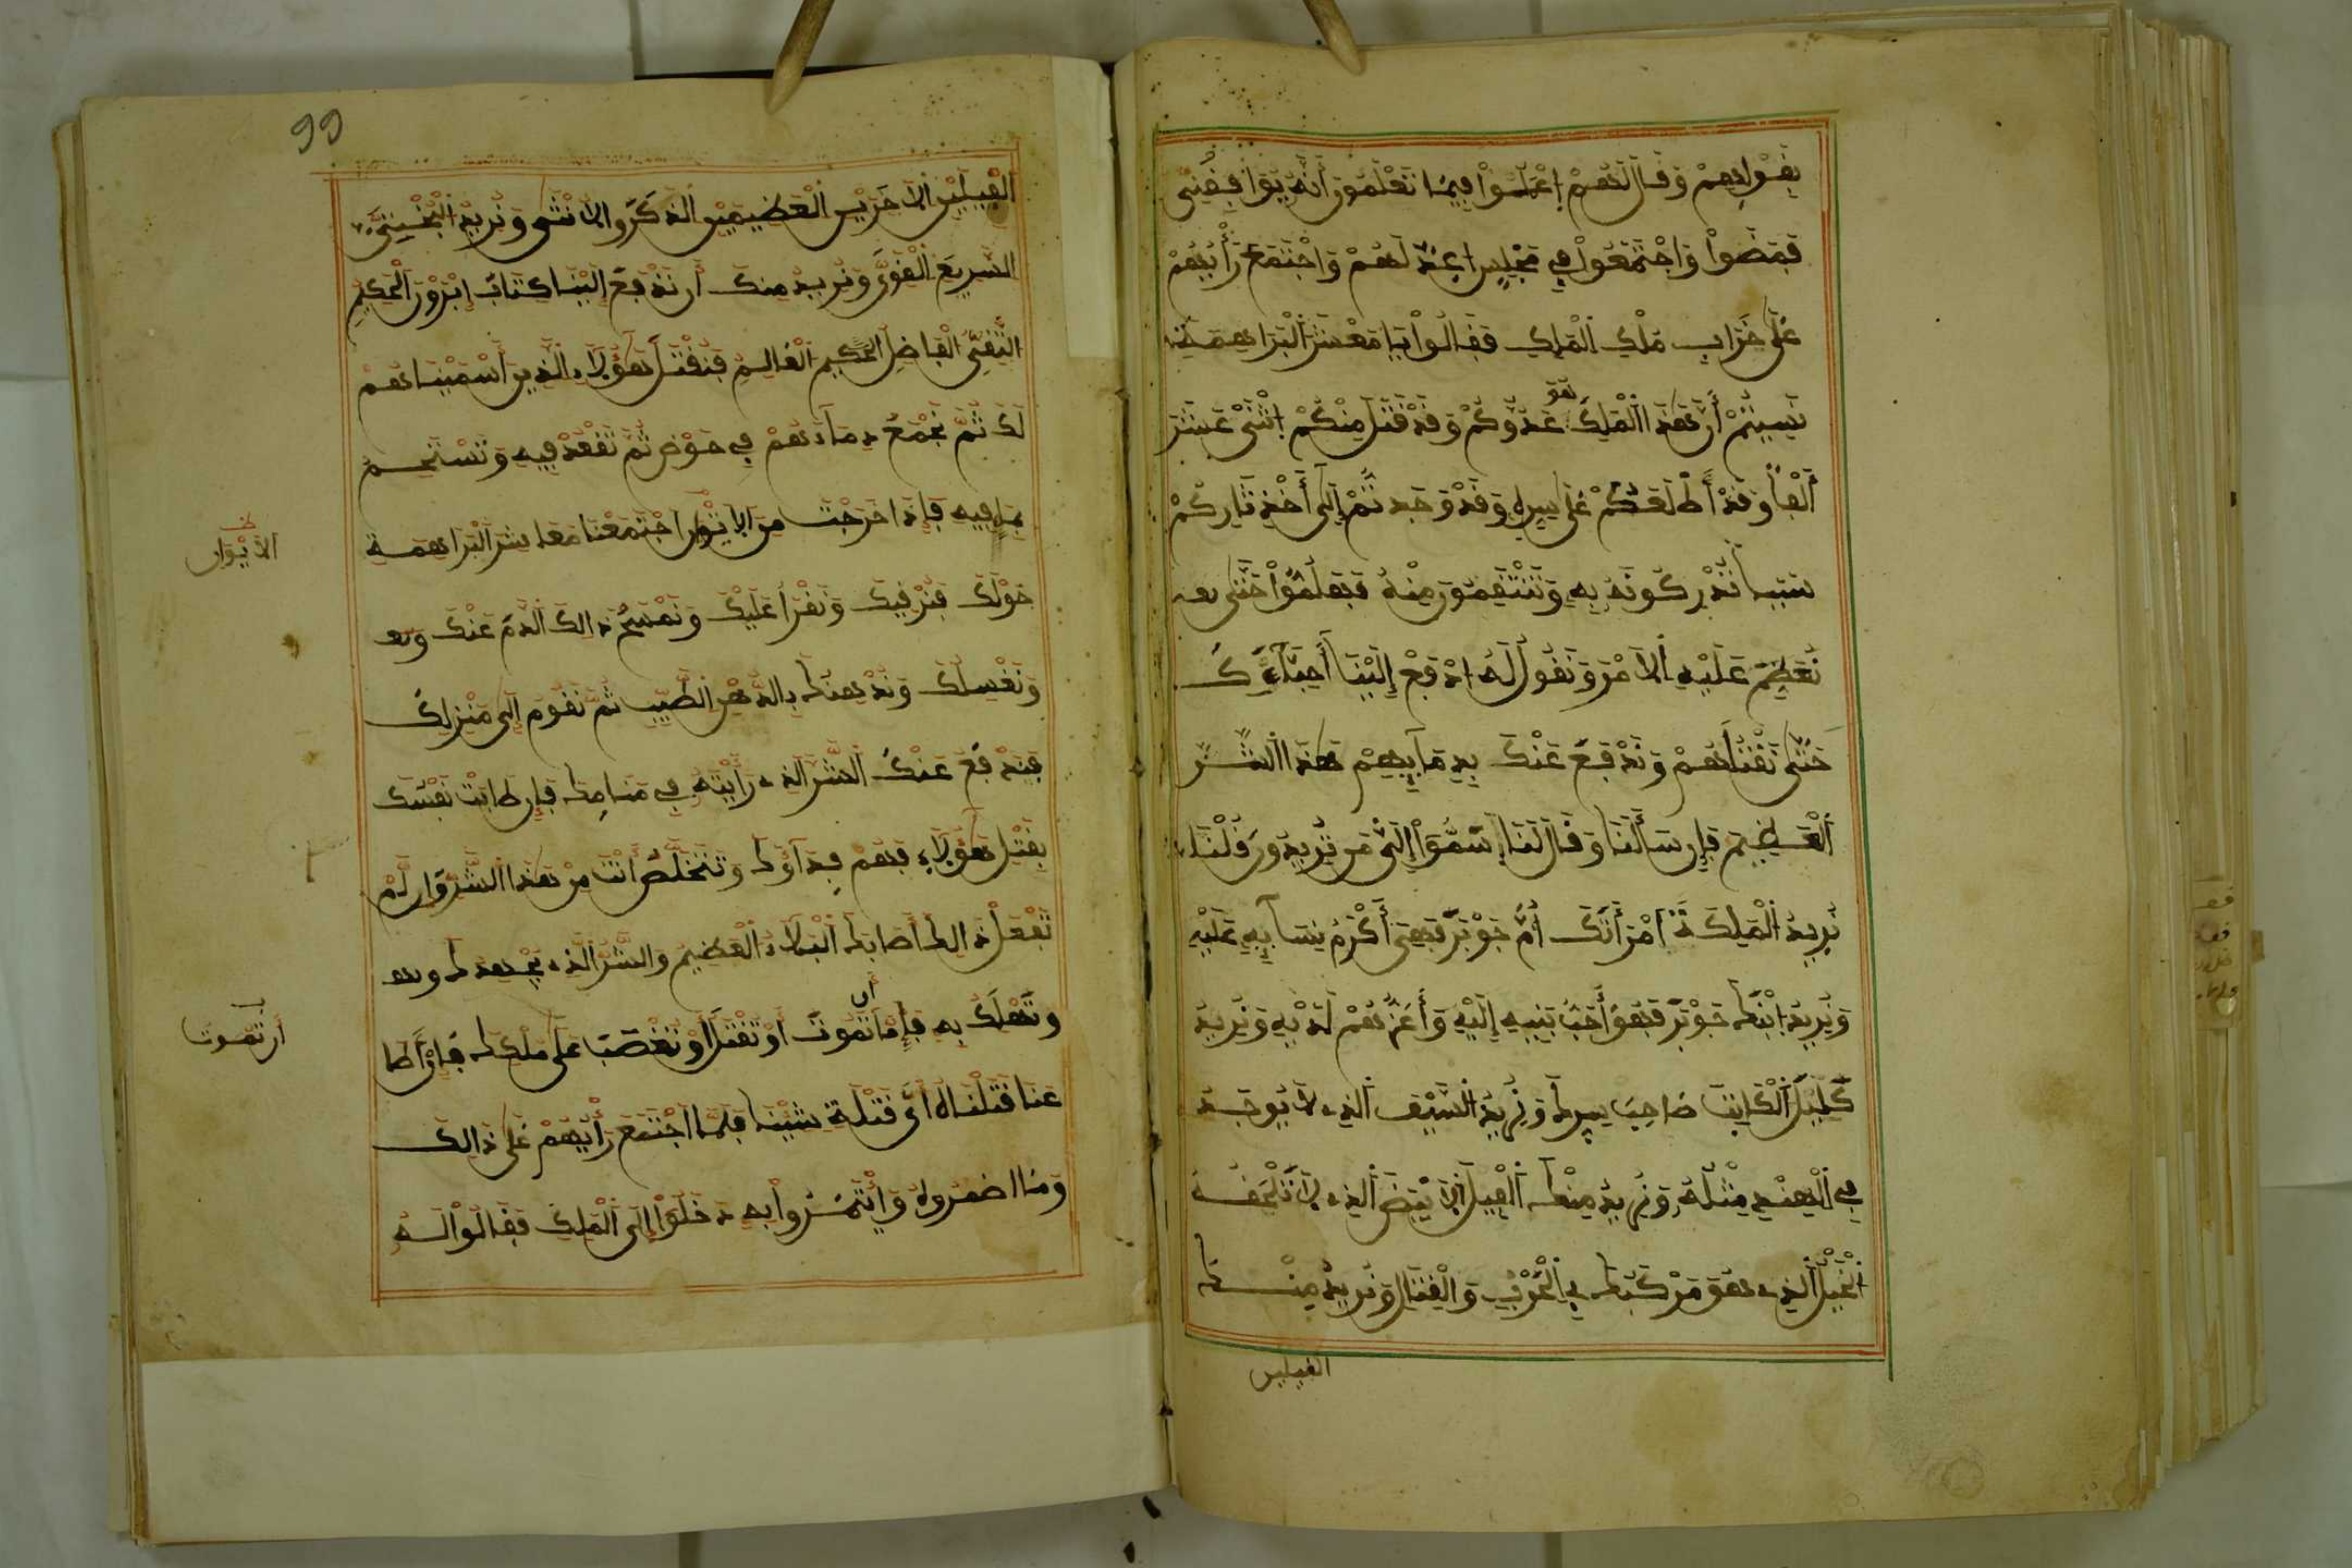 بقولهم وقال لهم اعملوا فيما تعلمون أنه يوافقني
فمضوا واجتمعوا في مجلس عند لهم واجتمع رأيهم
على خراب ملك الملك فقالوا يا معشر البراهمة
نسيتم أن هذا الملك هو عدوكم وقد قتل منكم اثني عشر
ألفا وقد أطلعكم على سره وقد وجدتم إلى أخذ ثاركم
سببا تدركونه به وتنتقمون منه فهلموا حتى
نعظم عليه الأمر ونقول له ادفع إلينا أحباءك
حتى نقتلهم وندفع عنك بدمايهم هذا الشر
العظيم فإن سألنا وقال لنا سموا إلي من تريدون قلنا
نريد الملكة امرأتك أم جوبر فهي أكرم نسايه عليه
ونريد ابنك جوبر فهو أحب بنيه إليه وأعزهم لديه ونريد
كلبيل الكاتب صاحب سرك ونريد السيف الذي لا يوجد
في الهند مثله ونريد منك الفيل الأبيض الذي لا تلحقه
الخيل الذي هو مركبك في الحرب والقتال ونريد منك
الفيلين
99
الفيلين الأخريين العظيمين الذكر والأنثى ونريد البختي
السريع القوي ونريد منك أن تدفع إلينا كتاب ابزون الحكيم
التقي الفاضل الحكيم العالم فنقتل هؤلاء الذين أسميناهم
لك ثم نجمع دماءهم في حوض ثم تقعد فيه وتستحم
بما فيه فإذا خرجت من الابثون اجتمعنا معاشر البراهمة
حولك فنرقيك ونقرأ عليك ونمسح ذالك الدم عنك
ونغسلك وندهنك بالدهن الطيب ثم تقوم إلى منزلك
فيندفع عنك الشر الذي رأيته في منامك فإن طابت نفسك
بقتل هؤلاء فهم فداؤك وتتخلص أنت من هذا الشر وإن لم
تفعل ذالك أصابك البلاء العظيم والشر الذي يجهدك
وتهلك به فإما أن تموت أو تقتل أو تغصب على ملكك فإن أطا
عنا قتلناه أي قتلة شينا فلما اجتمع رأيهم على ذالك
وما اضمروه وايتمروا به دخلوا إلى الملك فقالوا له
الأبيزان
أن تموت